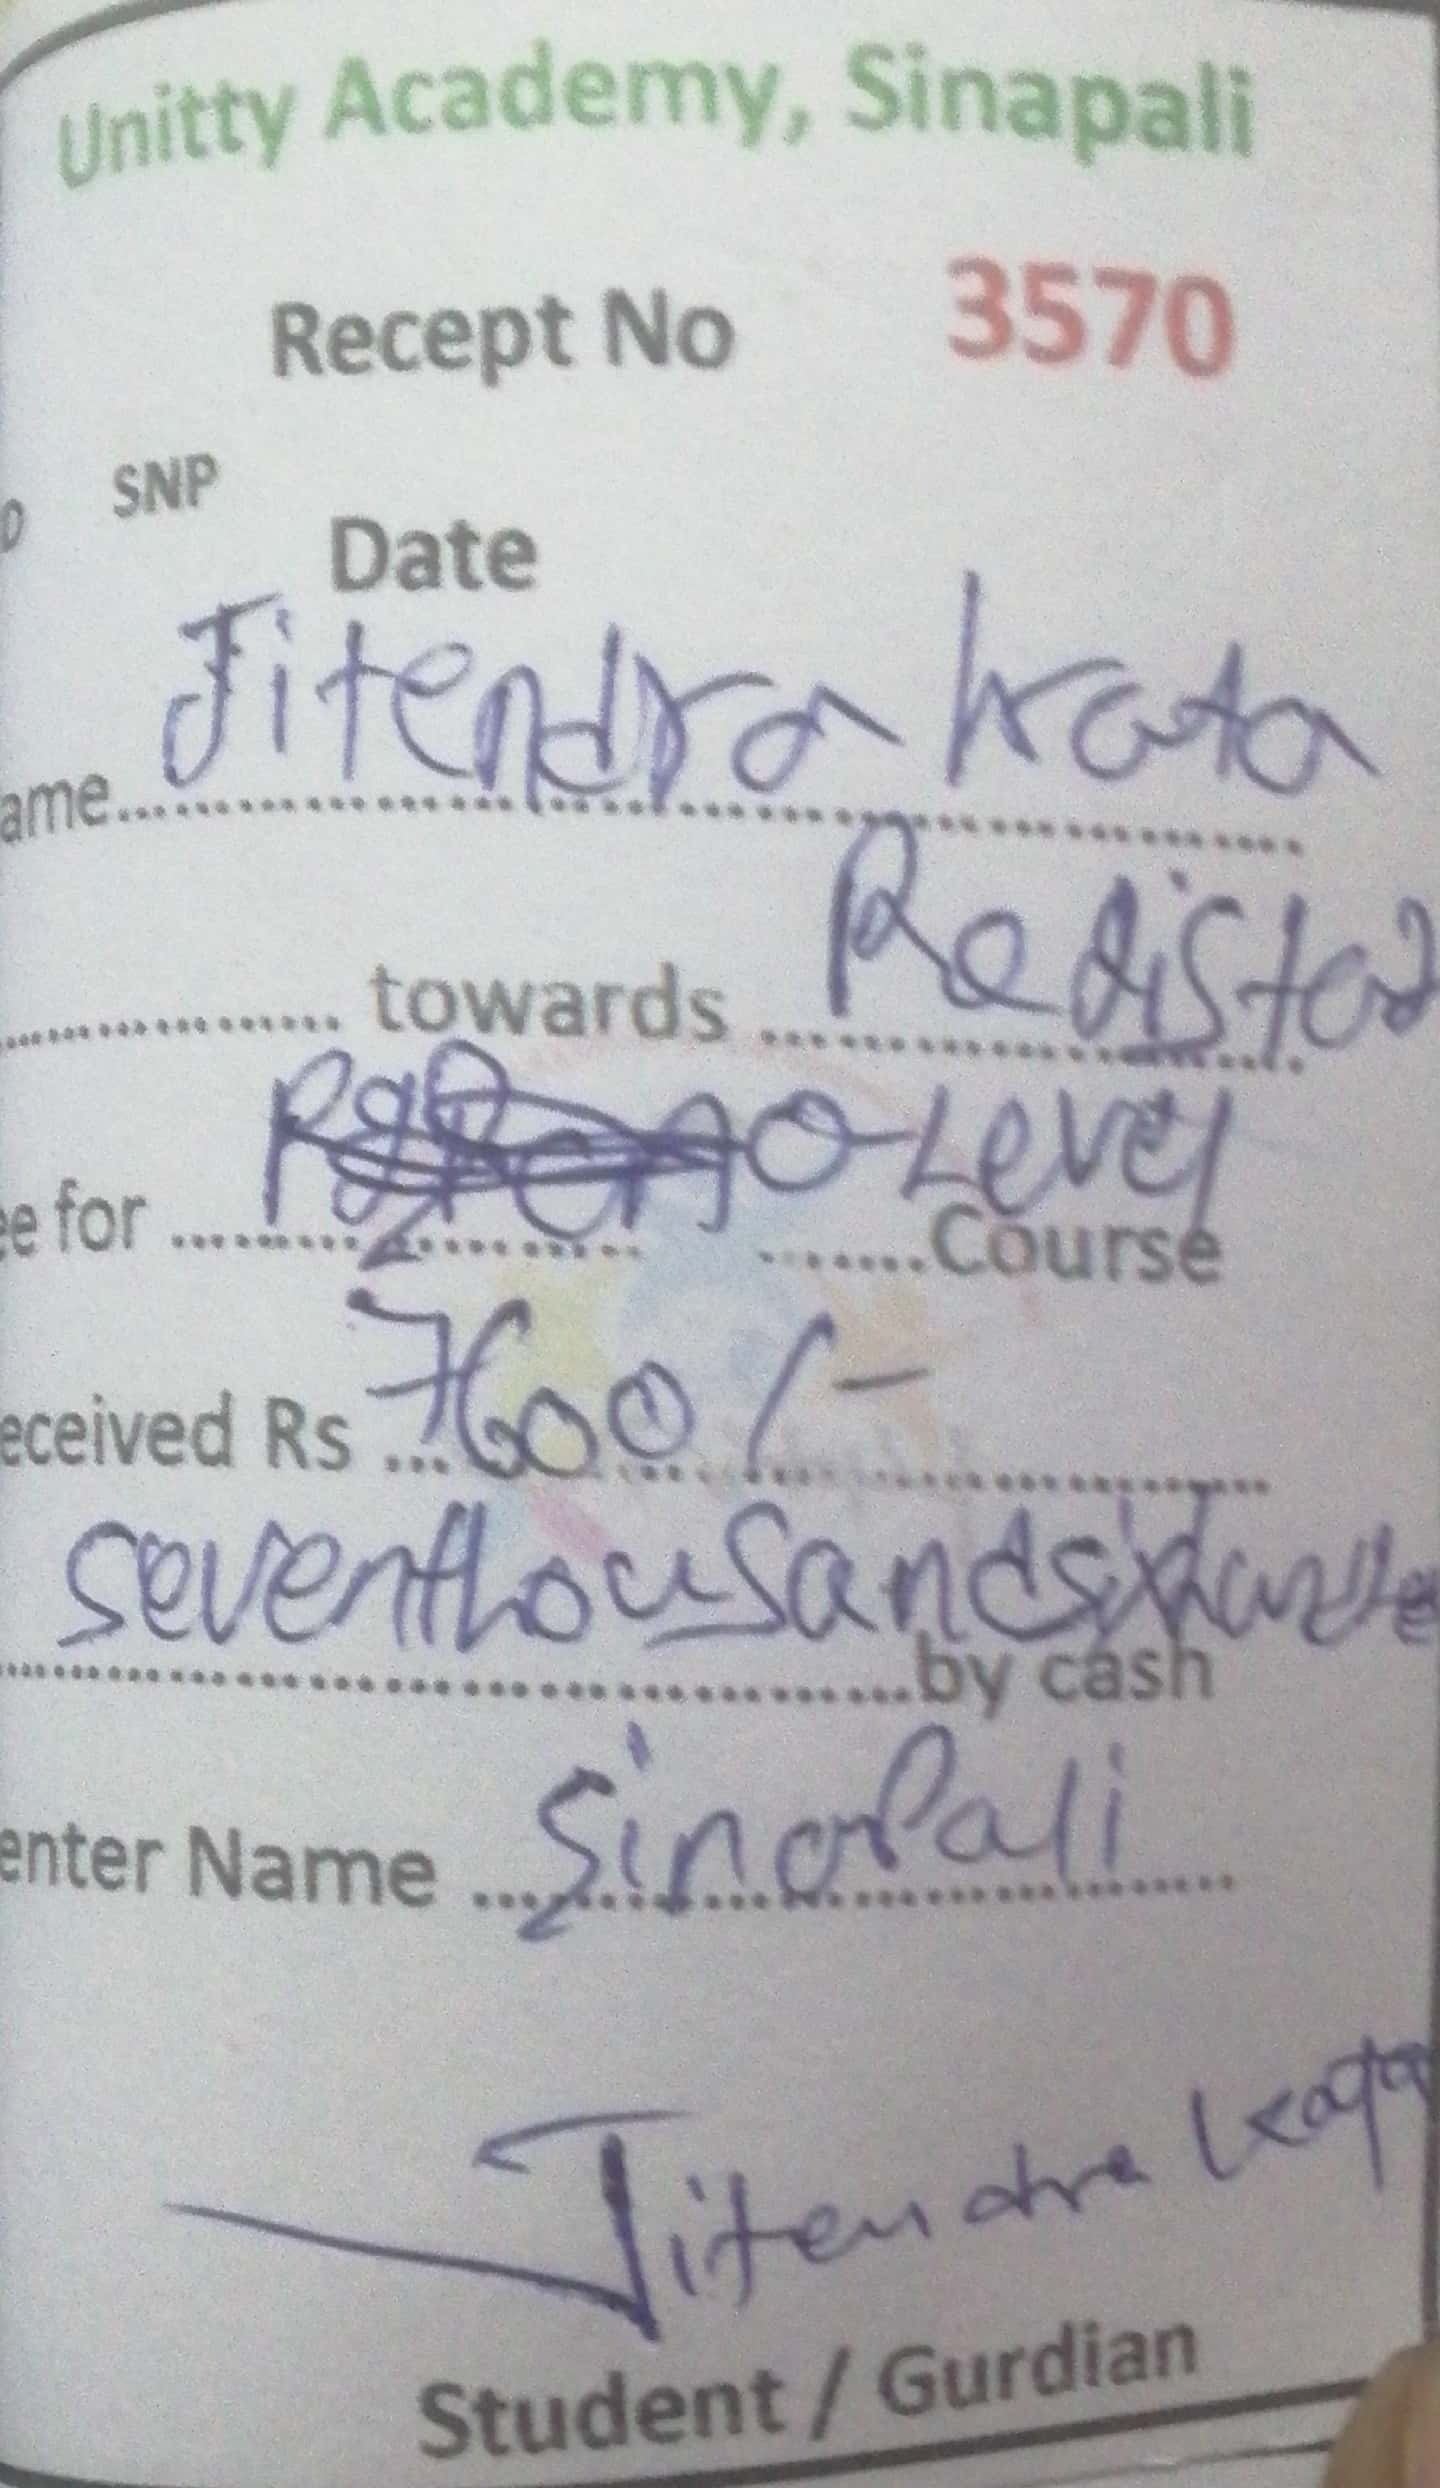 Unitty Academy, Sinapali
Recept No 3570
SNP
Date
Jitendra kata
ame....................
.................... towards .................... Redister
ee for .................... O-Level
.......Course
eceived Rs ... 7600/-
seventhousandsix
....................by cash
enter Name ... SinaPali
Jitendra kata
Student / Gurdian